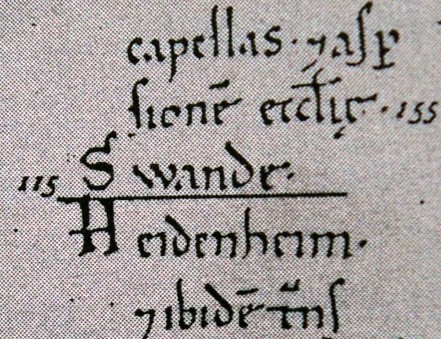 capellas· ⁊ aſꝑ
ſionē eccl̄ię· 155
115 Swande·
Heidenheim·
⁊ ibidē